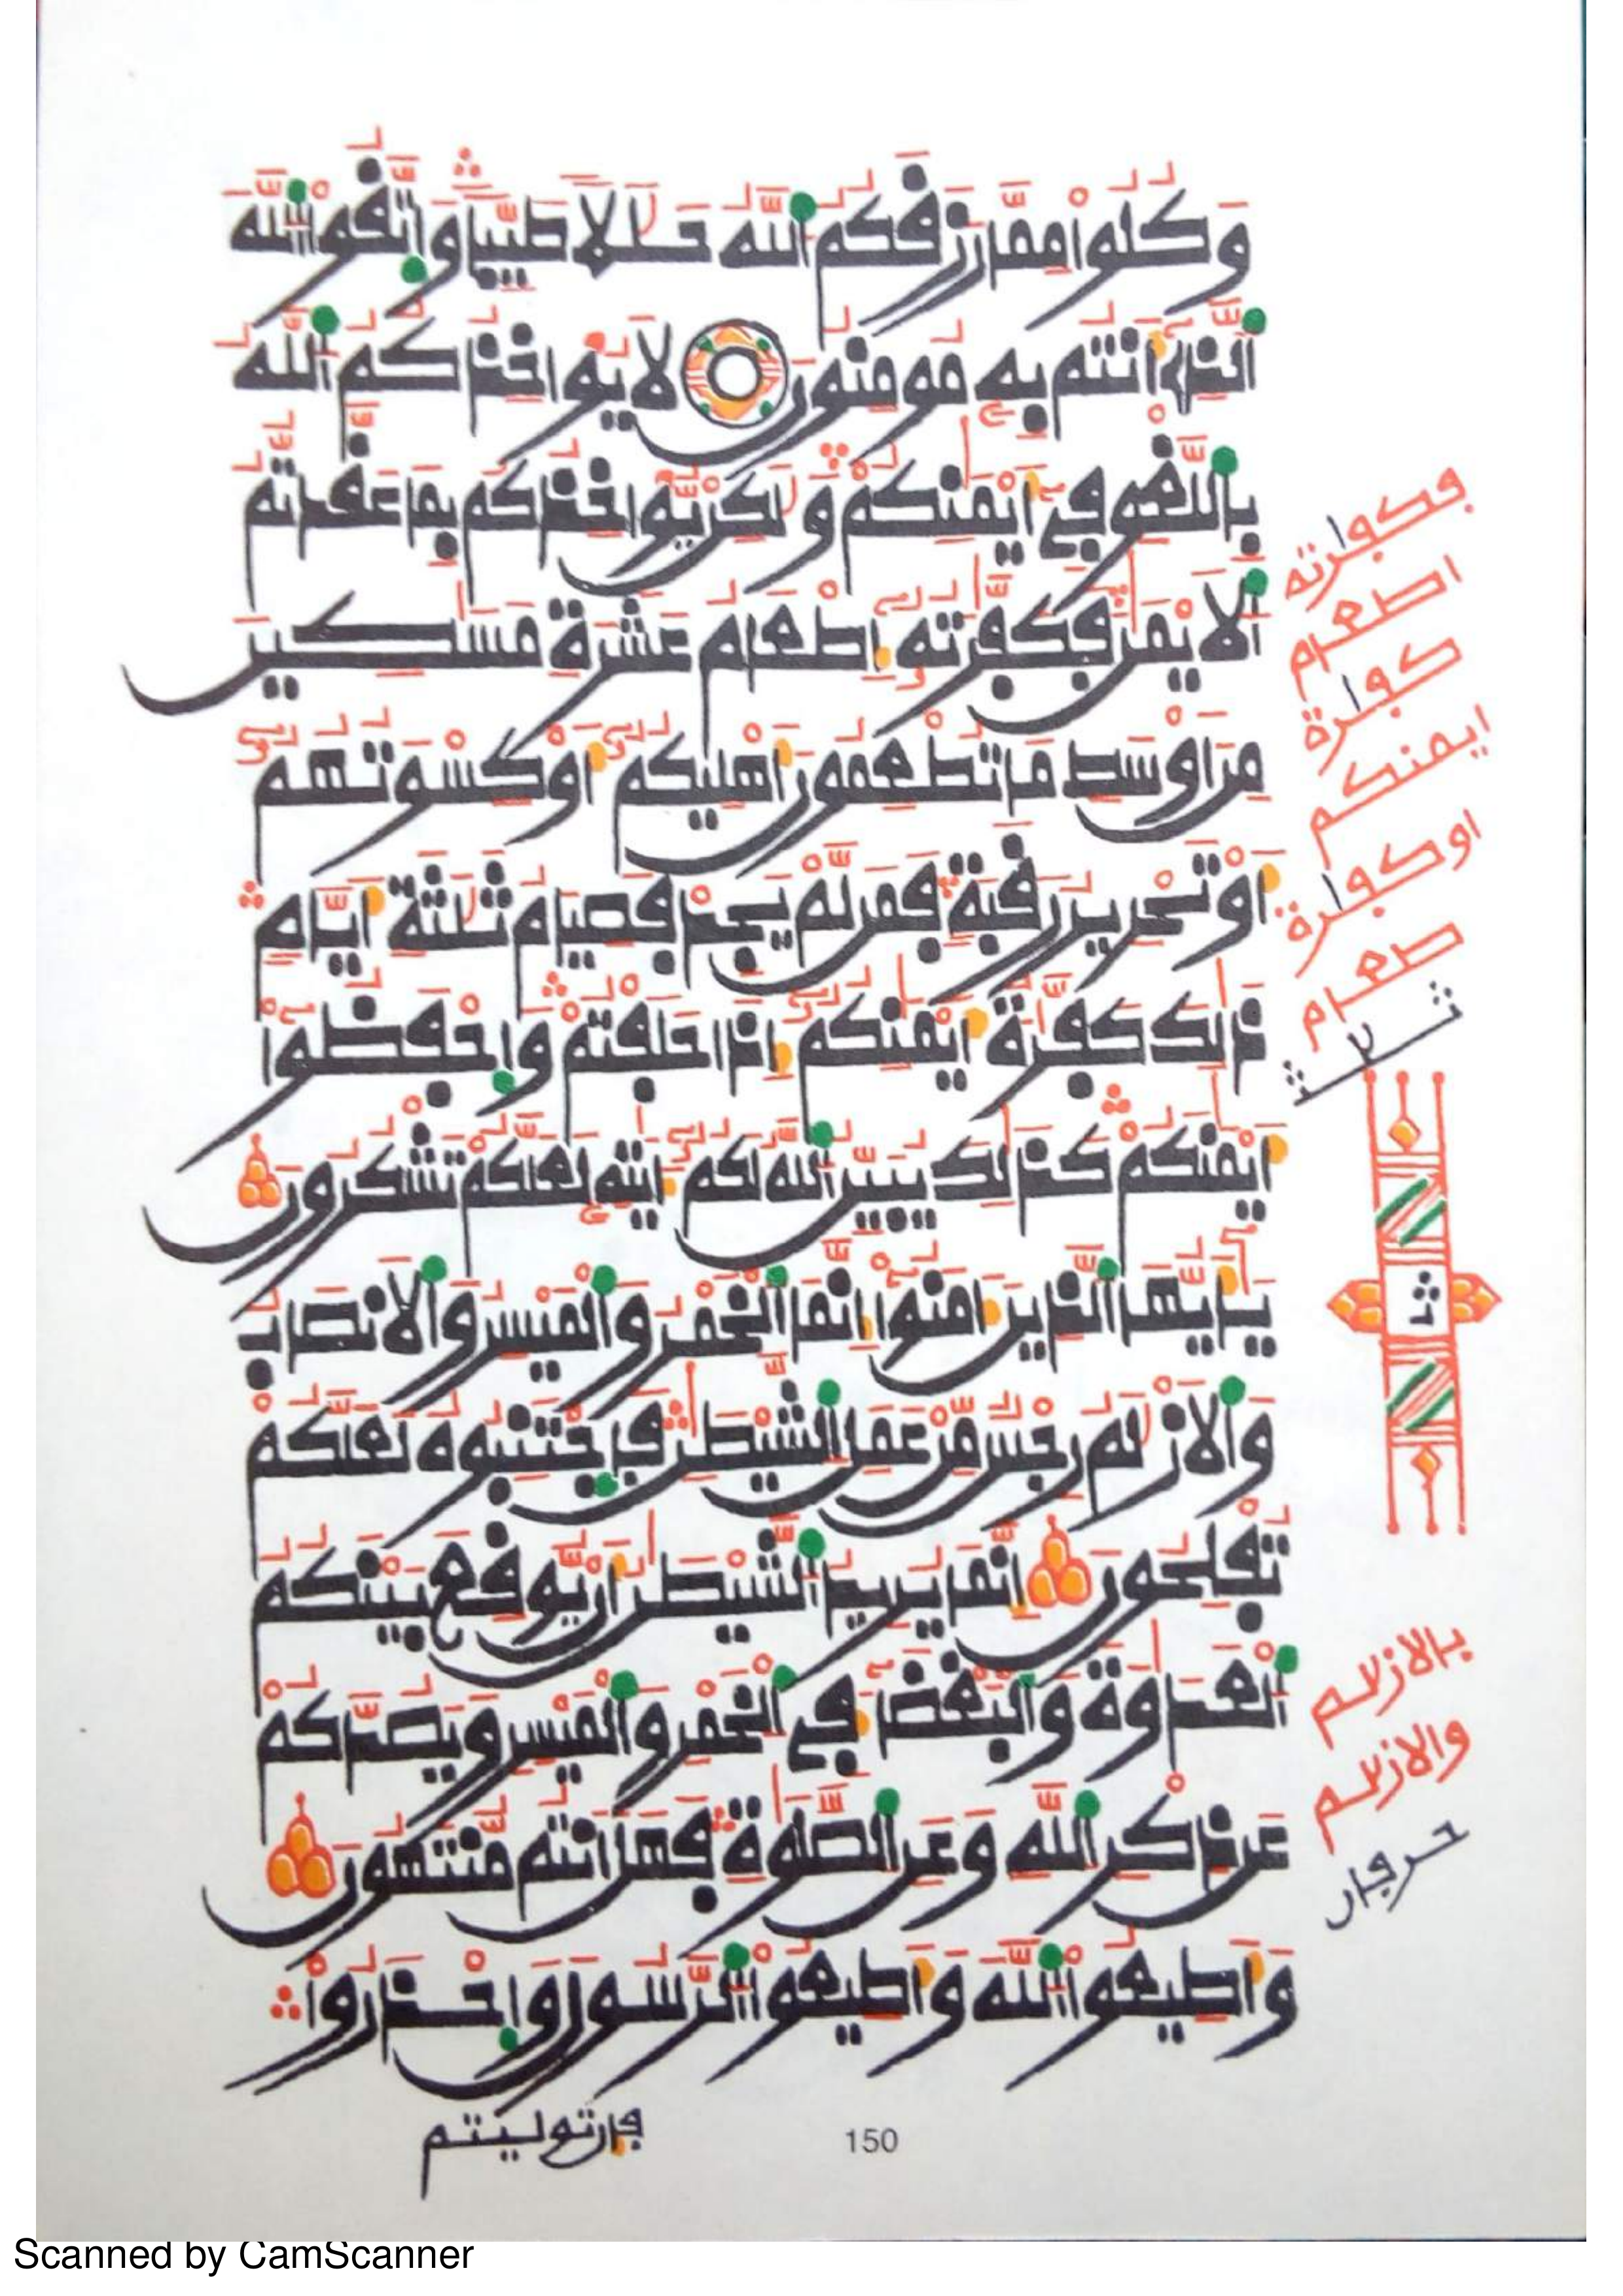 وَكُلُوا مِمَّا رَزَقَكُمُ اللَّهُ حَلَلًا طَيِّبًا وَاتَّقُوا اللَّهَ
الَّذِي أَنتُم بِهِ مُومِنُونَ لَا يُوَاخِذُكُمُ اللَّهُ
بِاللَّغْوِ فِي أَيْمَنِكُمْ وَلَكِن يُوَاخِذُكُم بِمَا عَقَّدتُّمُ
الْأَيْمَنَ فَكَفَّرَتُهُ إِطْعَامُ عَشَرَةِ مَسَكِينَ
مِنْ أَوْسَطِ مَا تُطْعِمُونَ أَهْلِيكُمْ أَوْ كِسْوَتُهُمْ
أَوْ تَحْرِيرُ رَقَبَةٍ فَمَن لَّمْ يَجِدْ فَصِيَامُ ثَلَثَةِ أَيَّامٍ
ذَلِكَ كَفَّرَةُ أَيْمَنِكُمْ إِذَا حَلَفْتُمْ وَاحْفَظُوا
أَيْمَنَكُمْ كَذَلِكَ يُبَيِّنُ اللَّهُ لَكُمْ ءَايَتِهِ لَعَلَّكُمْ تَشْكُرُونَ
يَأَيُّهَا الَّذِينَ ءَامَنُوا إِنَّمَا الْخَمْرُ وَالْمَيْسِرُ وَالْأَنصَابُ
وَالْأَزْلَمُ رِجْسٌ مِّنْ عَمَلِ الشَّيْطَنِ فَاجْتَنِبُوهُ لَعَلَّكُمْ
تُفْلِحُونَ إِنَّمَا يُرِيدُ الشَّيْطَنُ أَن يُوقِعَ بَيْنَكُمُ
الْعَدَاوَةَ وَالْبَغْضَاءَ فِي الْخَمْرِ وَالْمَيْسِرِ وَيَصُدَّكُمْ
عَن ذِكْرِ اللَّهِ وَعَنِ الصَّلَوةِ فَهَلْ أَنتُم مُّنتَهُونَ
وَأَطِيعُوا اللَّهَ وَأَطِيعُوا الرَّسُولَ وَاحْذَرُوا
فإن توليتم
150
فكفارته
اطعام
كفارة
ايمنكم
او كفارة
طعام
بالازلم
والازلم
حرفان
Scanned by CamScanner